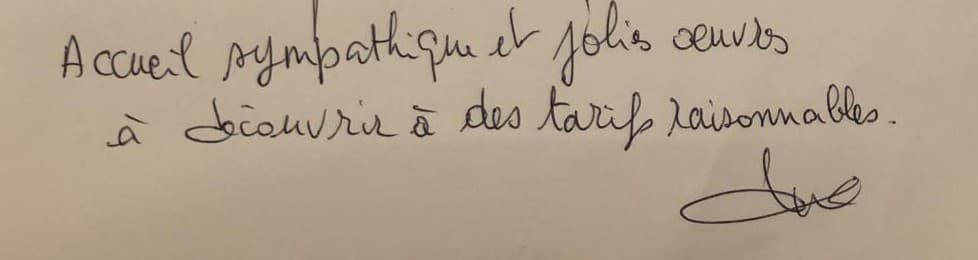 Accueil sympathique et jolis œuvres
à découvrir à des tarifs raisonnables.